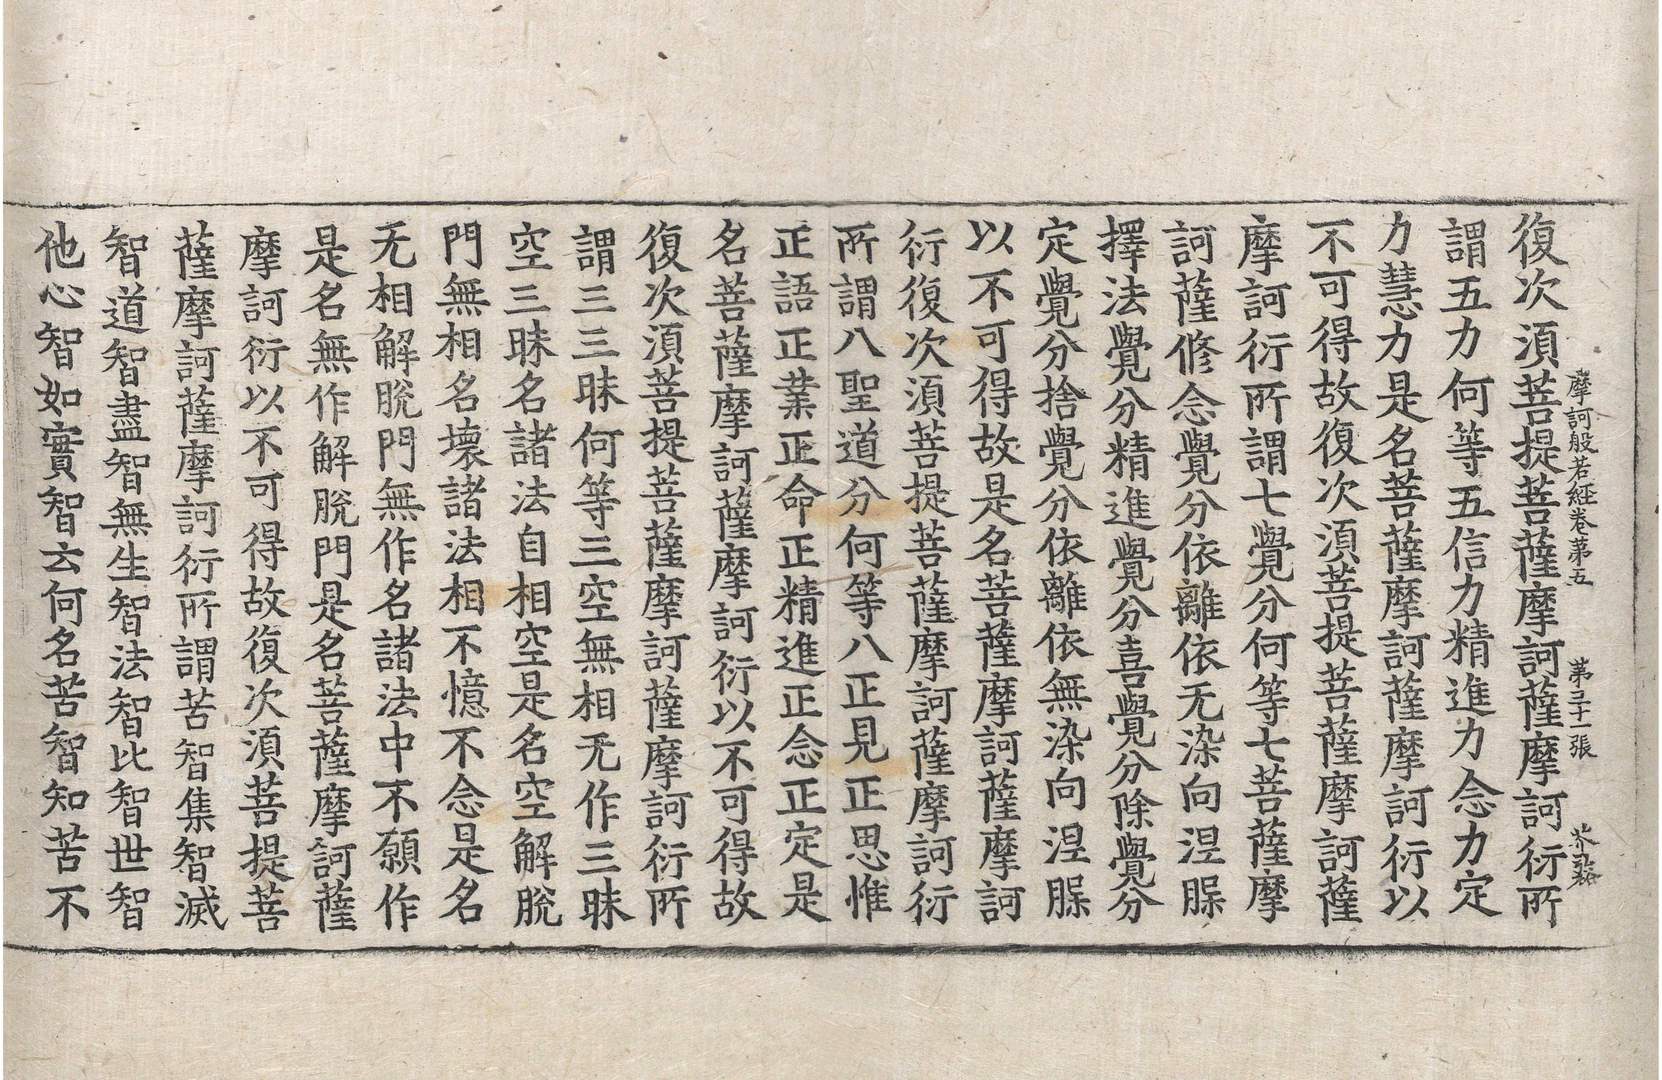 摩訶般若経卷苐五 苐三十一張 芥
復次湏菩提菩薩摩訶薩摩訶衍所
謂五力何等五信力精進力念力定
力慧力是名菩薩摩訶薩摩訶衍以
不可得故復次湏菩提菩薩摩訶薩
摩訶衍所謂七覺分何等七菩薩摩
訶薩修念覺分依離依无染向涅槃
擇法覺分精進覺分喜覺分除覺分
定覺分捨覺分依離依無染向涅槃
以不可得故是名菩薩摩訶薩摩訶
衍復次湏菩提菩薩摩訶薩摩訶衍
所謂八聖道分何等八正見正思惟
正語正業正命正精進正念正定是
名菩薩摩訶薩摩訶衍以不可得故
復次湏菩提菩薩摩訶薩摩訶衍所
謂三三昧何等三空無相无作三昧
空三昧名諸法自相空是名空解脫
門無相名壞諸法相不憶不念是名
无相解脫門無作名諸法中不願作
是名無作解脫門是名菩薩摩訶薩
摩訶衍以不可得故復次湏菩提菩
薩摩訶薩摩訶衍所謂苦智集智滅
智道智盡智無生智法智比智世智
他心智如實智云何名苦智知苦不